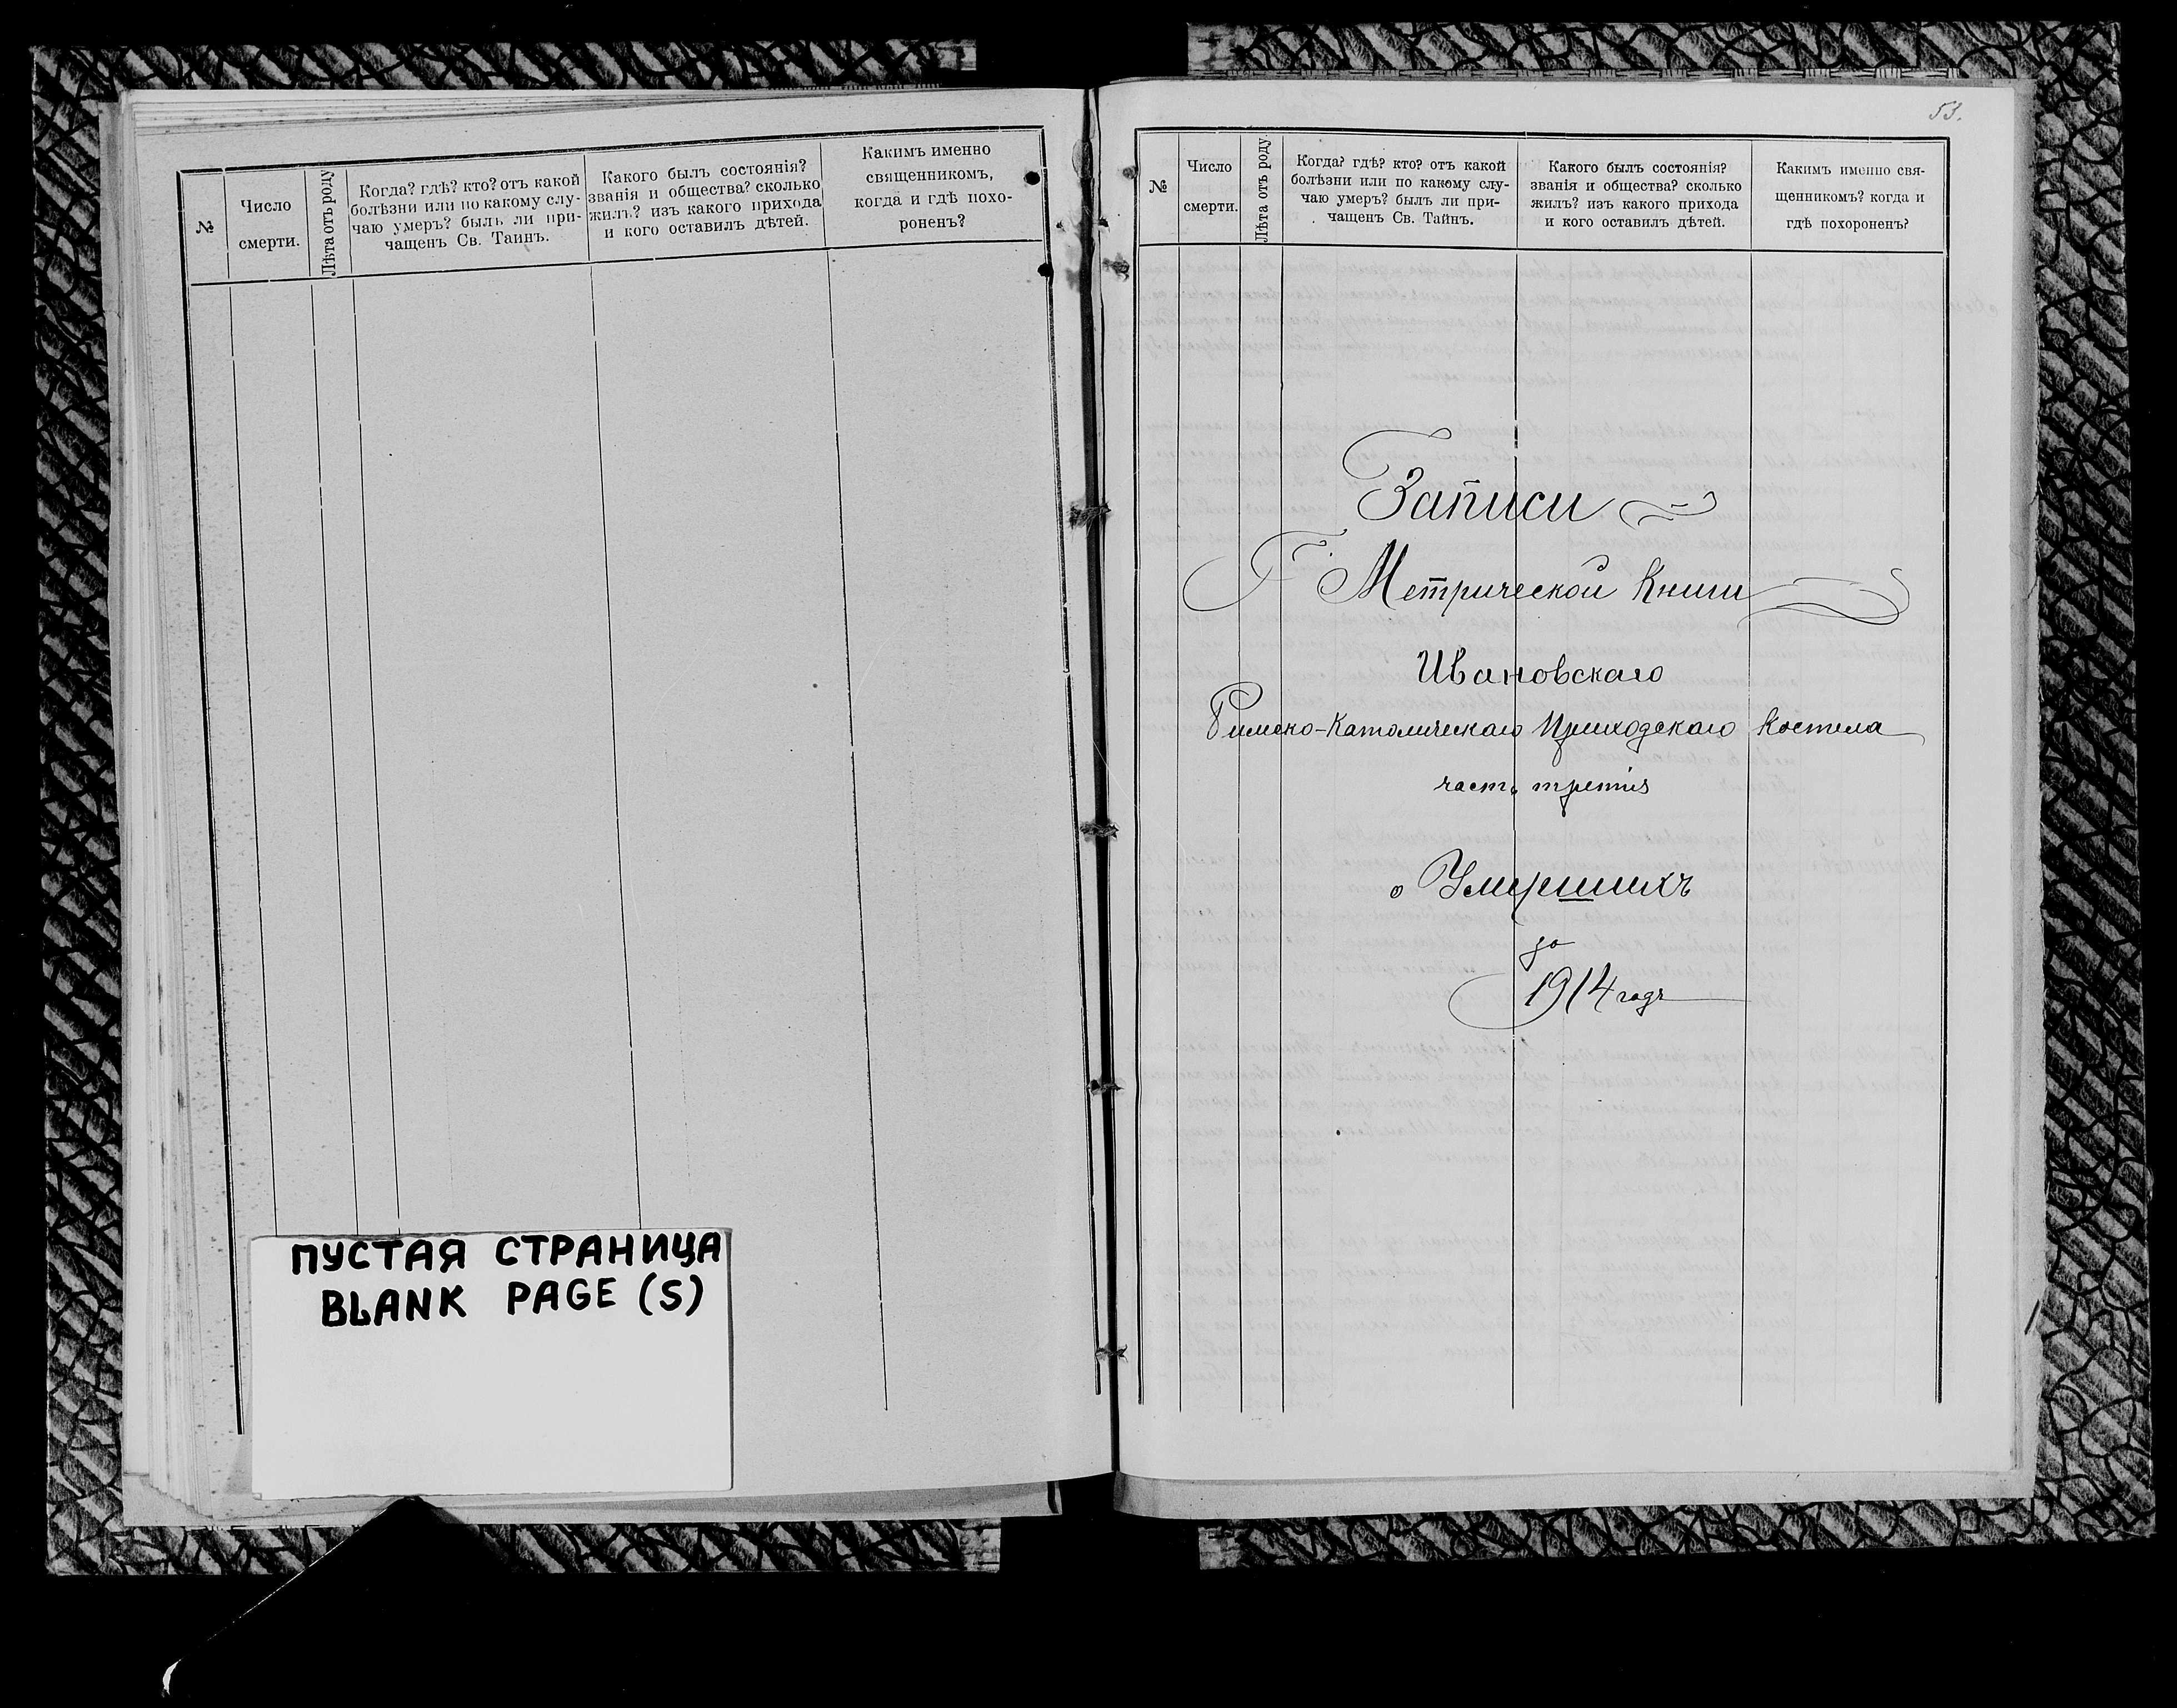 №
Число
смерти.
Лѣта отъ роду
Когда? гдѣ? кто? отъ какой
болѣзни или по какому слу-
чаю умеръ? былъ ли при-
чащенъ Св. Таинъ.
Какого былъ состоянія?
званія и общества? сколько
жилъ? изъ какого прихода
и кого оставилъ дѣтей.
Какимъ именно
священникомъ,
когда и гдѣ похо-
роненъ?
ПУСТАЯ СТРАНИЦА
BLANK PAGE (S)
53.
№
Число
смерти.
Лѣта отъ роду
Когда? гдѣ? кто? отъ какой
болѣзни или по какому слу-
чаю умеръ? былъ ли при-
чащенъ Св. Тайнъ.
Какого былъ состоянія?
званія и общества? сколько
жилъ? изъ какого прихода
и кого оставилъ дѣтей.
Какимъ именно свя-
щенникомъ? когда и
гдѣ похороненъ?
Записи
Метрической Книги
Ивановскаго
Римско-Католическаго Приходскаго Костела
часть третія
о Умершихъ
за
1914 годъ